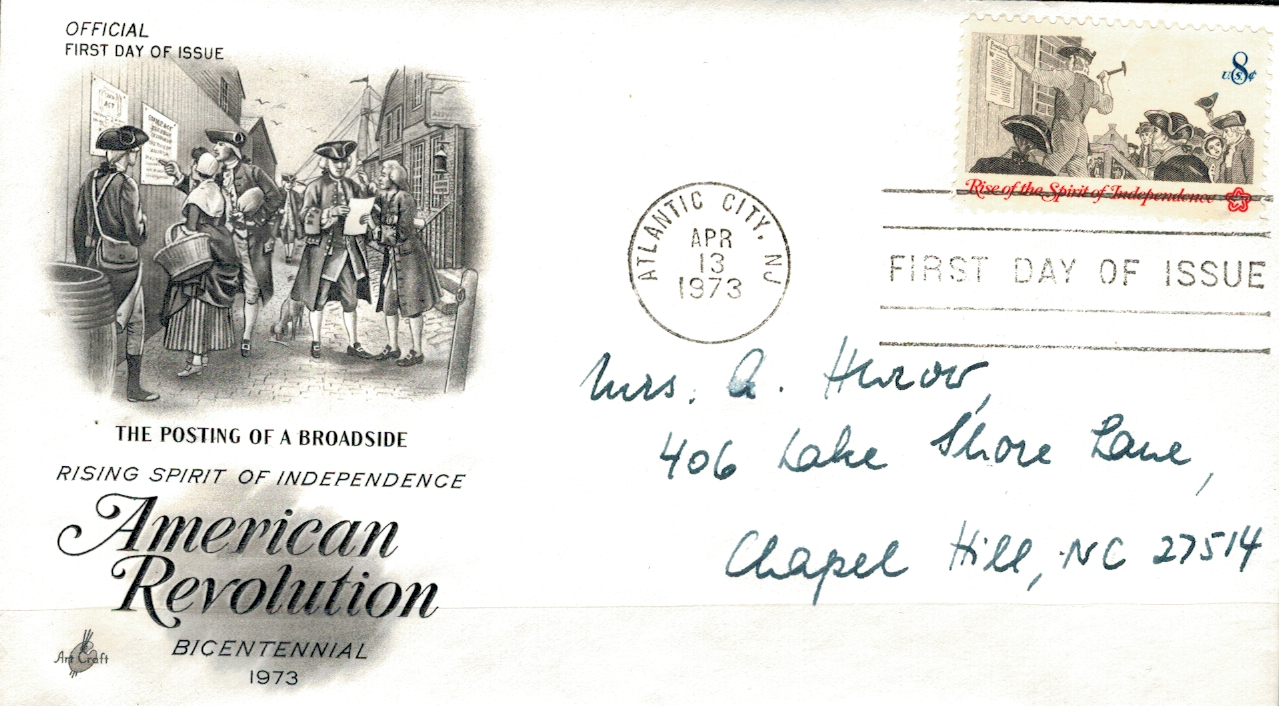 OFFICIAL
FIRST DAY OF ISSUE
THE POSTING OF A BROADSIDE
RISING SPIRIT OF INDEPENDENCE
American
Revolution
BICENTENNIAL
1973
Art Craft
ATLANTIC CITY, NJ
APR
13
1973
8
U.S. ¢
Rise of the Spirit of Independence
FIRST DAY OF ISSUE
Mrs. A. Hurov,
406 Lake Shore Lane,
Chapel Hill, NC 27514